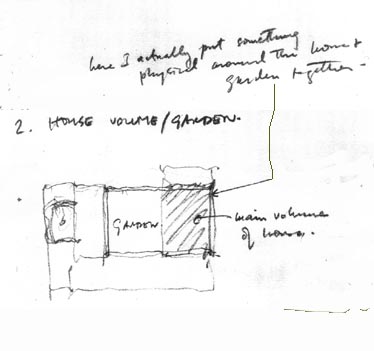 here I actually put something
physical around the house &
garden together -
2. HOUSE VOLUME/GARDEN.
GARDEN
main volume
of house.